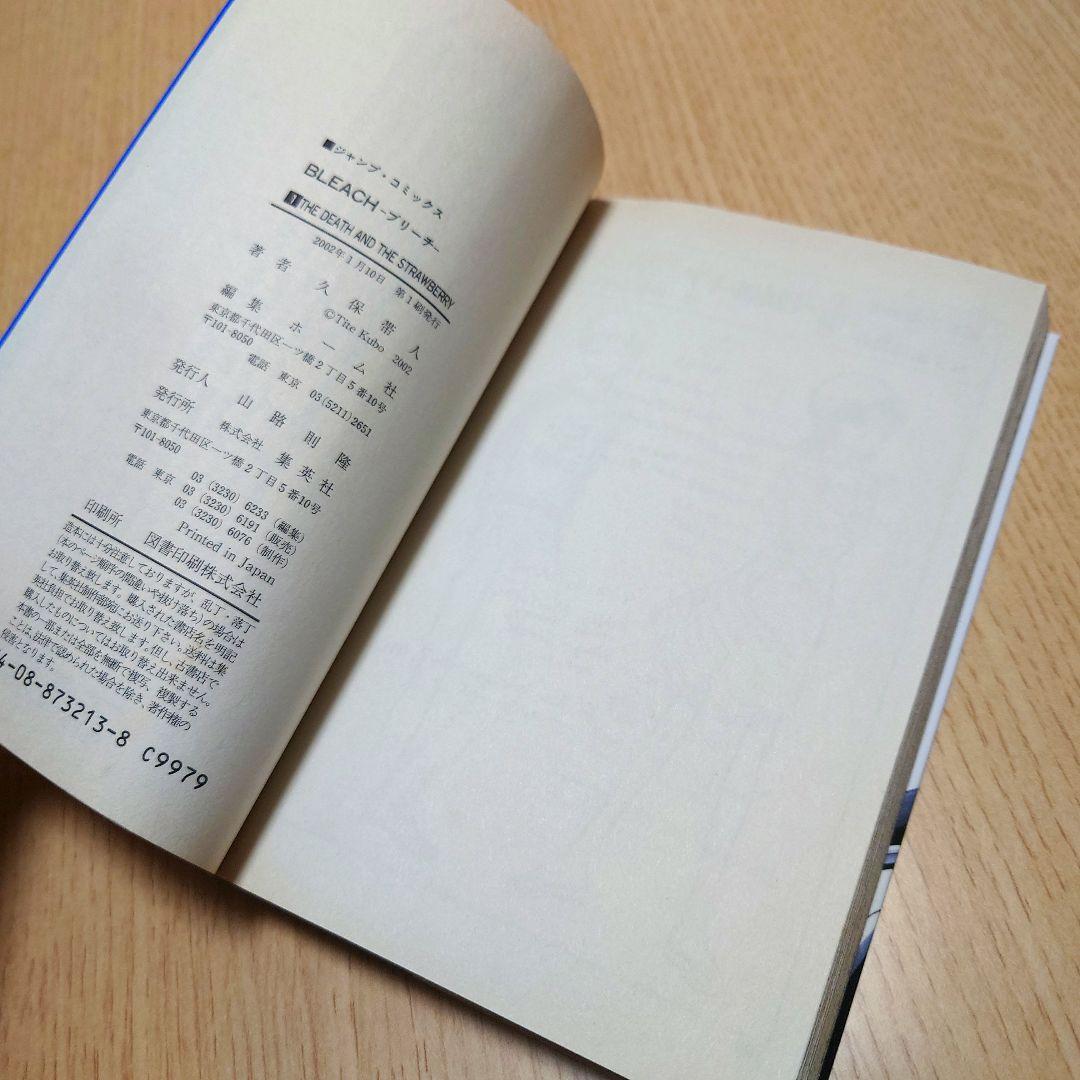 ■ジャンプ・コミックス
BLEACH-ブリーチ-
1 THE DEATH AND THE STRAWBERRY
2002年1月10日 第1刷発行
著者 久保帯人
©Tite Kubo 2002
編集 ホーム社
東京都千代田区一ツ橋2丁目5番10号
〒101-8050
電話 東京 03(5211)2651
発行人 山路則隆
発行所 株式会社 集英社
東京都千代田区一ツ橋2丁目5番10号
〒101-8050
03(3230)6233(編集)
電話 東京 03(3230)6191(販売)
03(3230)6076(制作)
Printed in Japan
印刷所 図書印刷株式会社
造本には十分注意しておりますが、乱丁・落丁
(本のページ順序の間違いや抜け落ち)の場合は
お取り替え致します。購入された書店名を明記
して、集英社制作部宛にお送り下さい。送料は集
英社負担でお取り替え致します。但し、古書店で
購入したものについてはお取り替え出来ません。
本書の一部または全部を無断で複写、複製する
ことは、法律で認められた場合を除き、著作権の
侵害となります。
4-08-873213-8 C9979